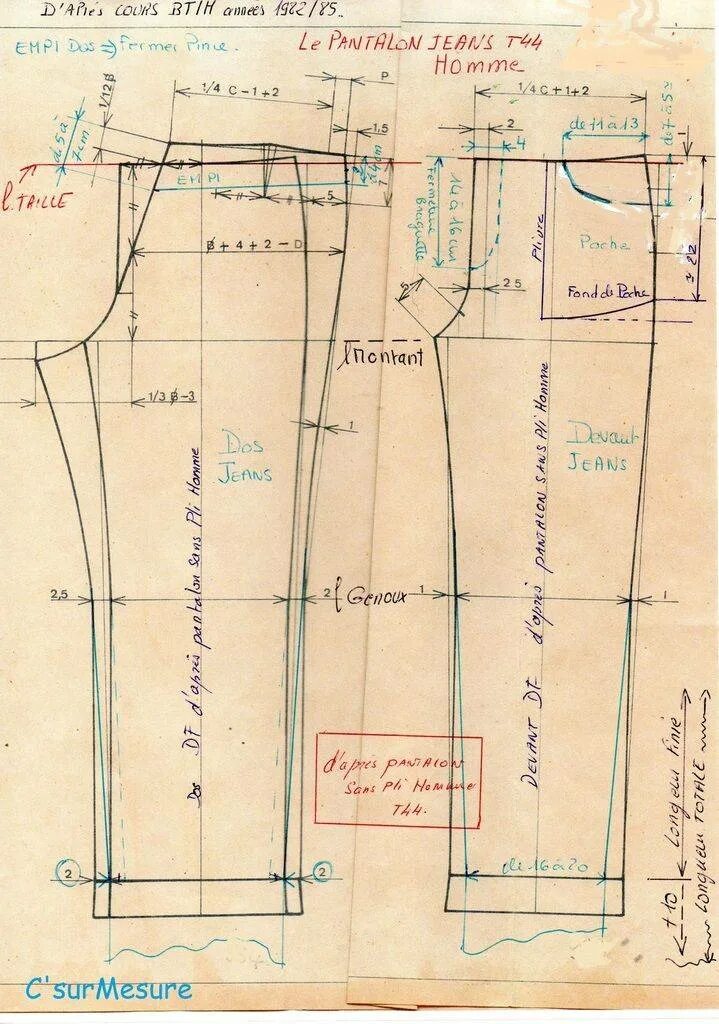 D'APrés COURS BT/H années 1982/85..
EMPI Dos => Fermer Pince.
Le PANTALON JEANS T44
HOMME
1/4 C - 1 + 2
P
1/12 B
de 5 à
7cm
1,5
l.TAILLE
EMPI
5
B + 4 + 2 - D
1/3 B - 3
1
Dos
JEANS
Dos DF d'après pantalon sans Pli Homme
2,5
2
l Genoux
l Montant
2
2
1/4 C + 1 + 2
2
4
de 11 à 13
1
Fermeture
Braguette
14 à 16cm
Pliure
Poche
Fond de Poche
22
5
25
Devant
JEANS
DEVANT DF d'après PANTALON SANS Pli Homme
1
1
d'après PANTALON
Sans Pli Homme
T44.
de 16 à 20
+ 10
Longueur Finie
Longueur TOTALE
C'surMesure